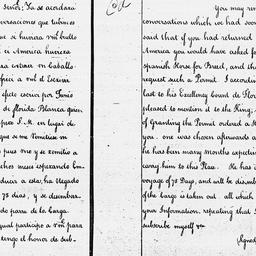 Señor: Ya se acordará
conversaciones que tubimos
que si hubiera Vm buelto
ci America huviera
para extraer un Caballo
ofreci a Vm el Escrivir
efecto escrivi por Junio
de Florida Blanca quien
puso S. M. en lugar de
que se me remitiese un
pues uno y se remitio a
chos meses esperando Em-
ducir a esta, ha llegado
75 dias, y se desembar-
do parte de la Carga.
qual participo a Vm para
tengo el honor de sub-
Cod
You may rem
conversations which we had soon
said that if you had returned
America you would have asked fo
Spanish Horse for Breed, and tha
request such a Permit. I accordin
last to his Excellency Count de Flori
pleased to mention it to the King;
of Granting the Permit ordered a H
you. one was chosen afterwards a
he has been many months expectin
carry him to this Place. He has
voyage of 75 Days, and will be disemb
of the Cargo is taken out. all which
your Information, repeating that I
subscribe myself &a
(Signed